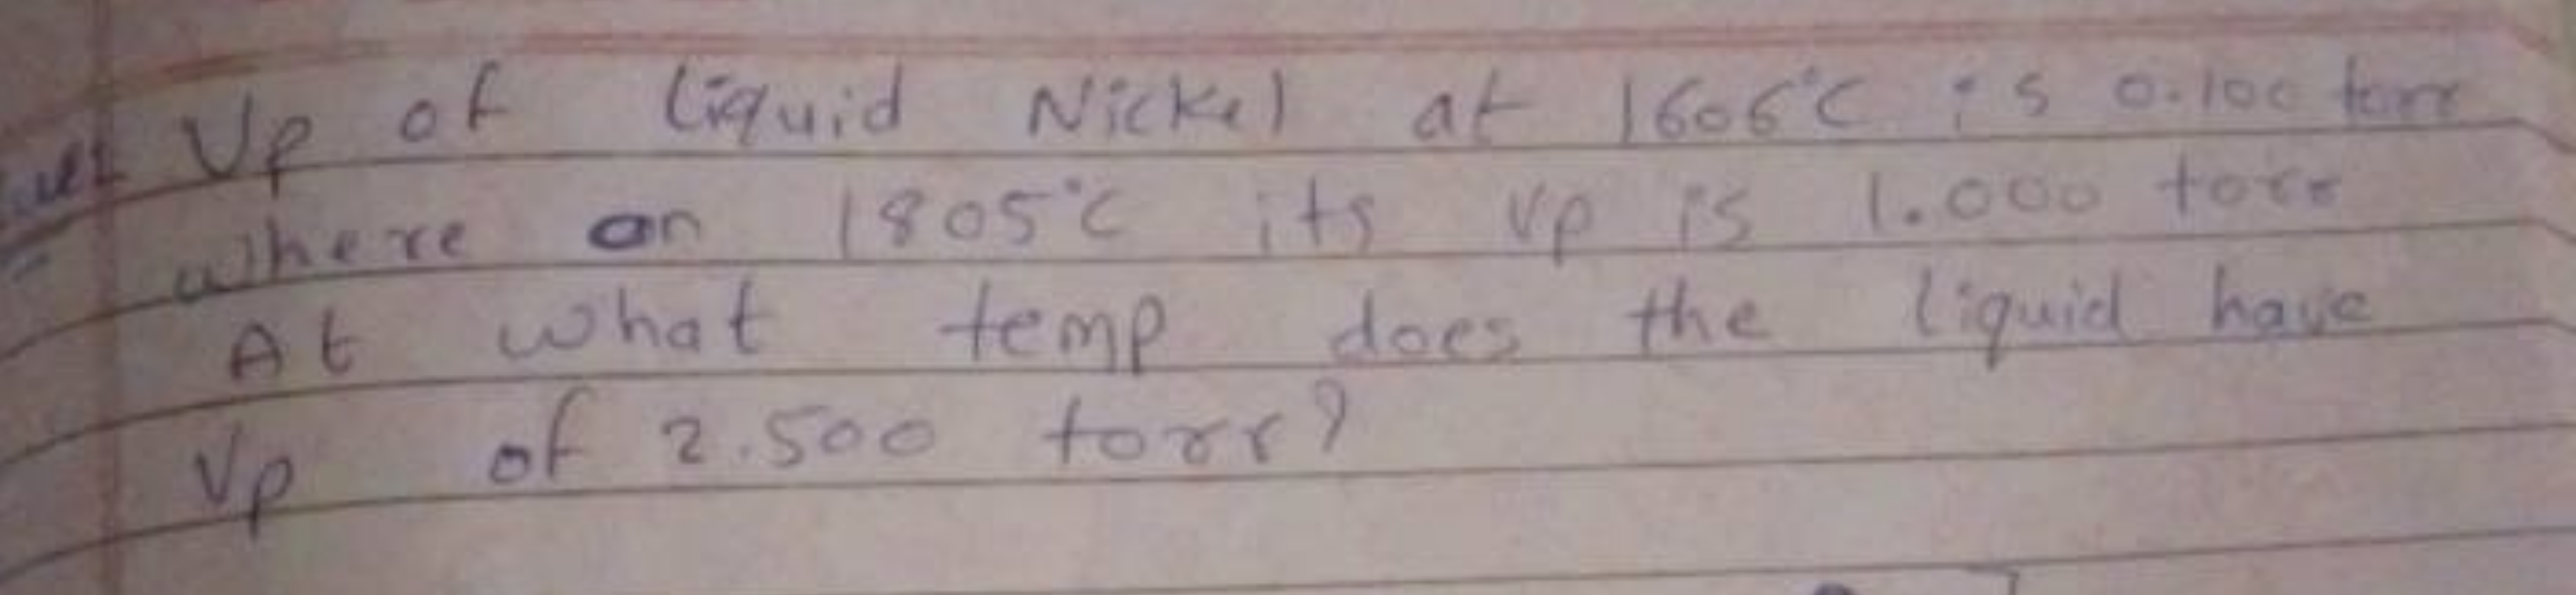 Vp of liquid Nickel at 1606°C is 0.100 torr
where on 1805°C its vp is 1.000 torr
At what temp does the liquid have
Vp of 2.500 torr?